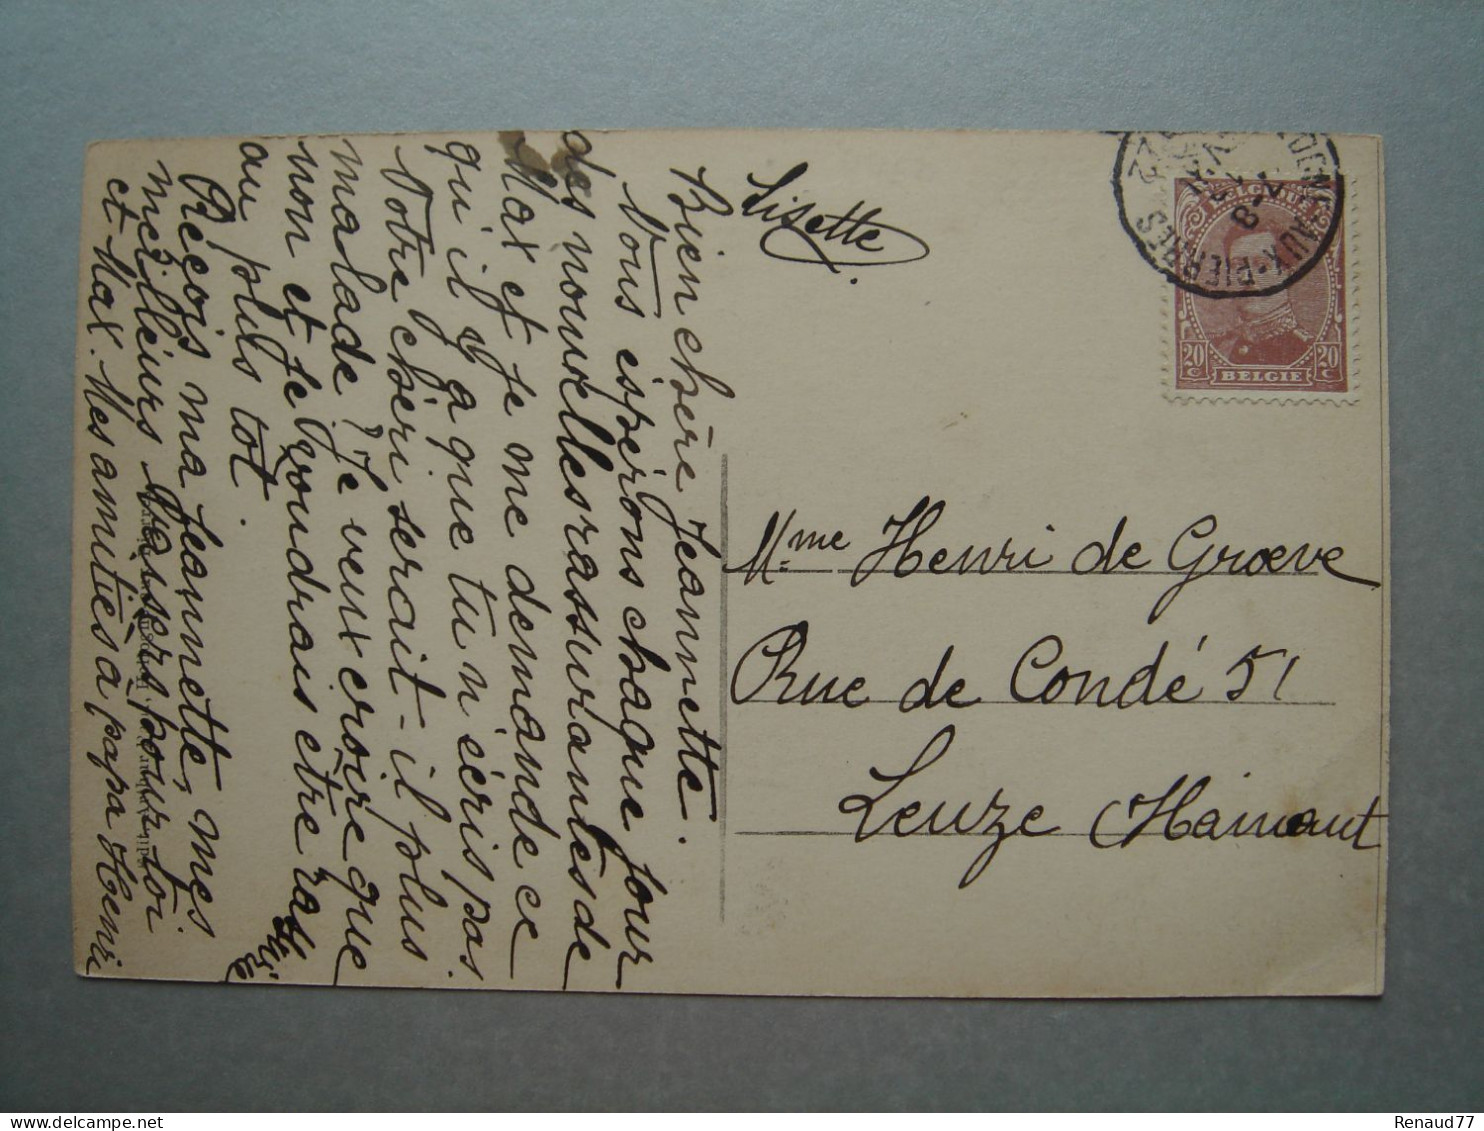 Bien chère Jeannette.
Nous espérons chaque jour
des nouvelles rassurantes de
Max et je me demande ce
qu'il y a que tu n'écris pas
Votre chéri serait-il plus
malade? Je veux croire que
non et je voudrais être ras
surée
au plus tot.
Reçois ma Jeannette, mes
meilleurs baisers pour toi
et Max. Mes amitiés à papa Henri
Lisette
Mme Henri de Groeve
Rue de Condé 51
Leuze Hainaut
BELGIQUE
20 c 20 c
BELGIE
AUX-PIERRES
8
22
Renaud77